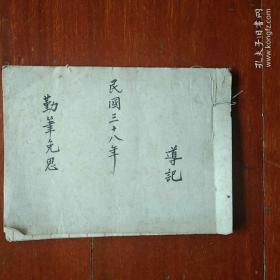 導記
民國三十八年
勤筆免思
孔夫子旧书网
www.kongfz.com